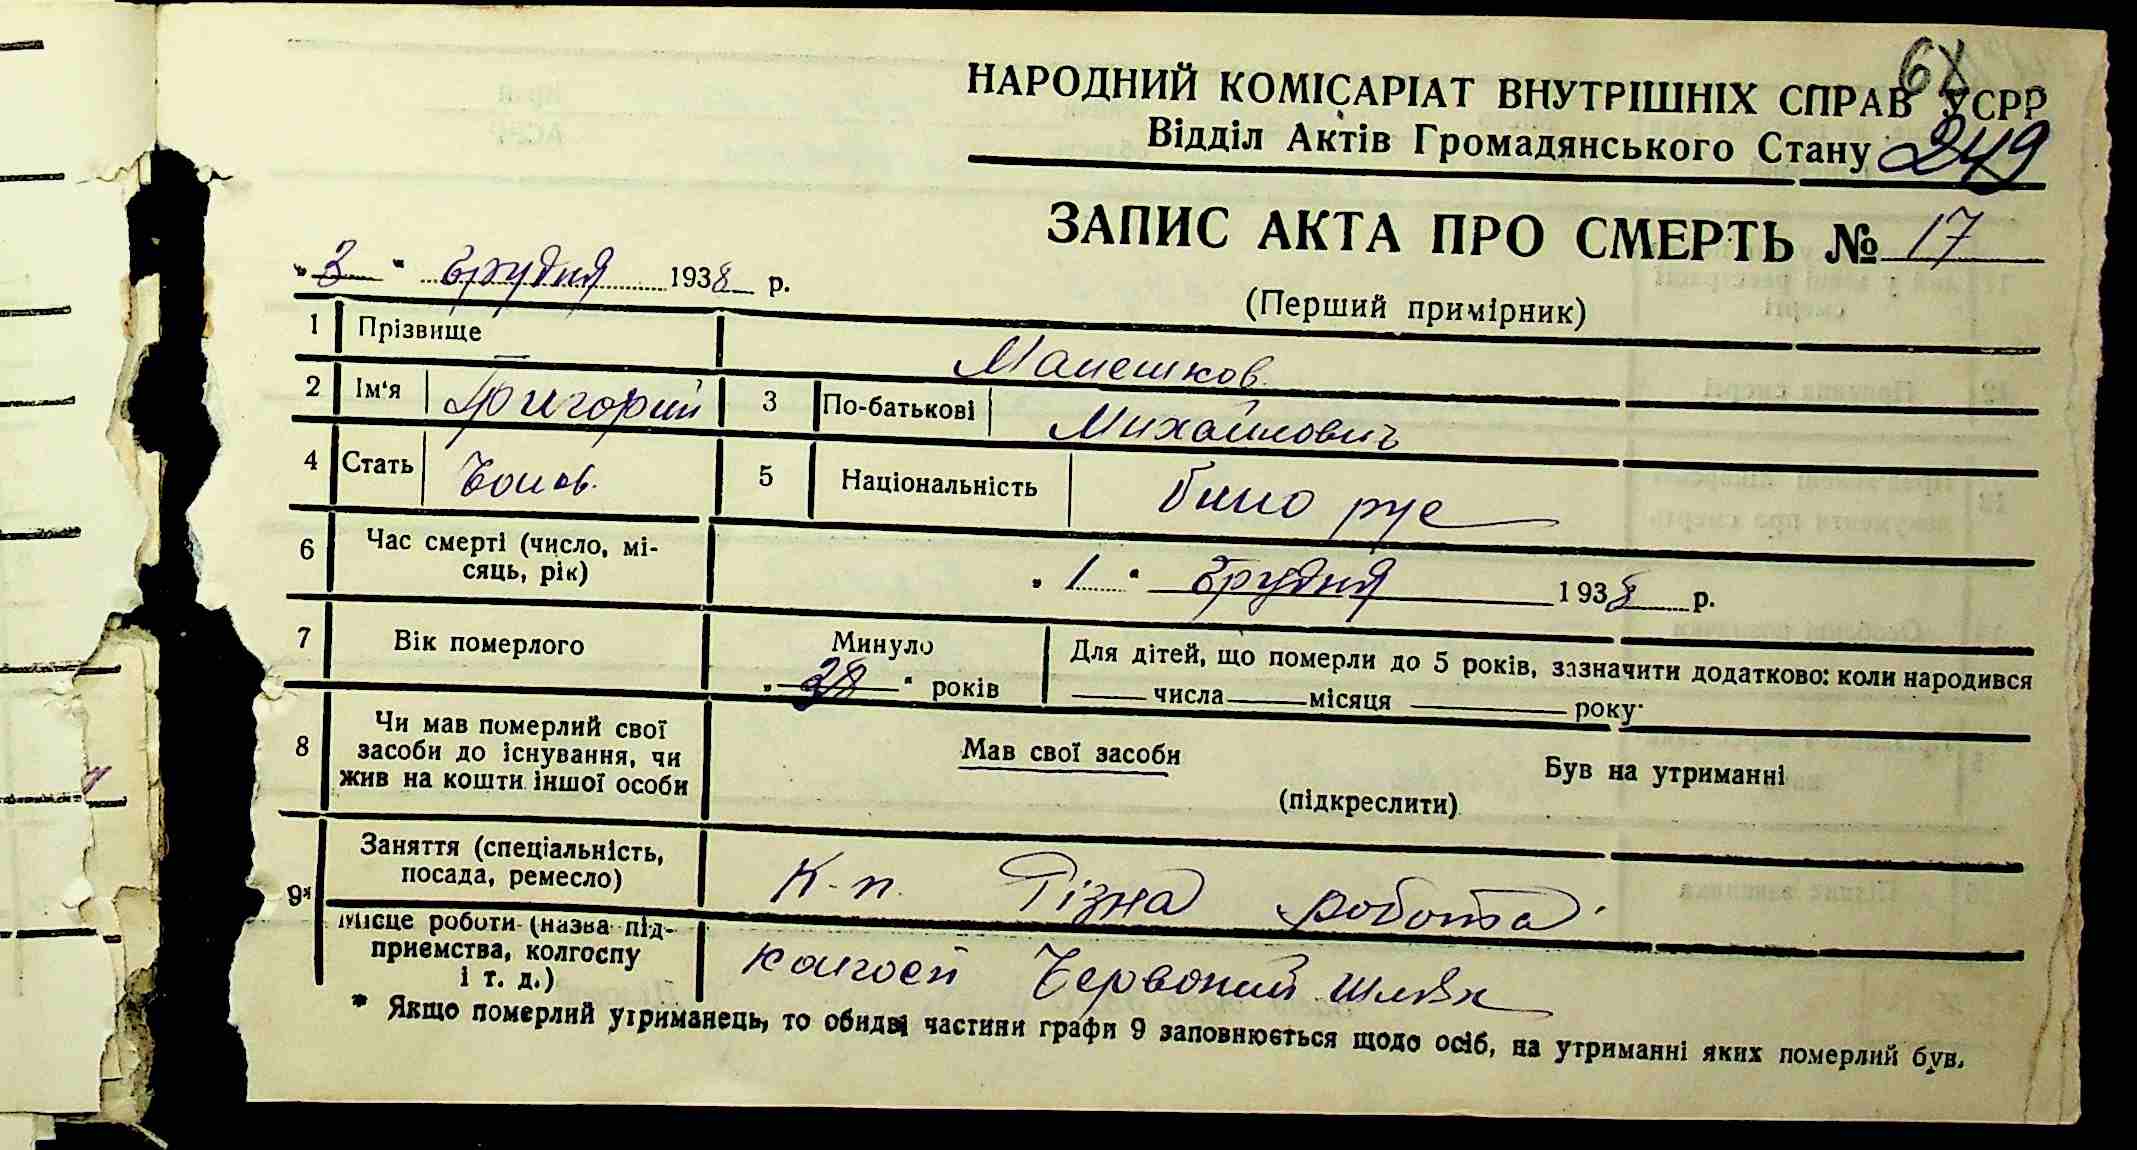 68
НАРОДНИЙ КОМІСАРІАТ ВНУТРІШНІХ СПРАВ УСРР
Відділ Актів Громадянського Стану 249
ЗАПИС АКТА ПРО СМЕРТЬ № 17
„ 3 “ Грудня 1938 р.
(Перший примірник)
1 Прізвище Малешков
2 Ім'я Григорий 3 По-батькові Михайлович
4 Стать Чолов. 5 Національність біло рус
6 Час смерті (число, мі-
сяць, рік) „ 1 “ Грудня 1938 р.
7 Вік померлого Минуло Для дітей, що померли до 5 років, зазначити додатково: коли народився
„ 38 “ років числа місяця року
Чи мав померлий свої
8 засоби до існування, чи Мав свої засоби Був на утриманні
жив на кошти іншої особи (підкреслити)
Заняття (спеціальність,
посада, ремесло) К-п. Різна робота
9*
Місце роботи (назва під-
приємства, колгоспу колгосп Червоний шлях
і т. д.)
* Якщо померлий утриманець, то обидві частини графи 9 заповнюється щодо осіб, на утриманні яких померлий був.